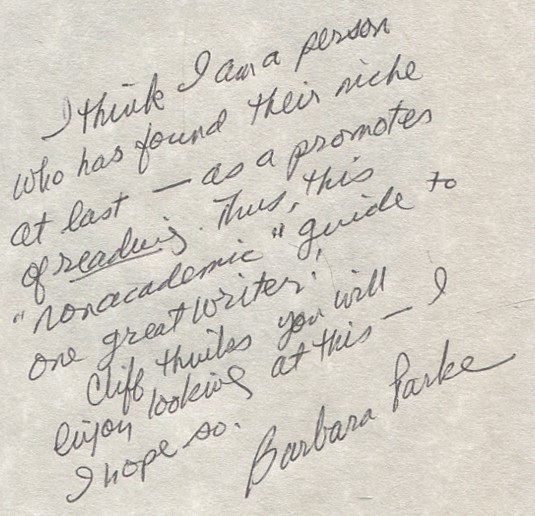 I think I am a person
who has found their niche
at last — as a promoter
of reading. Thus, this
"nonacademic" guide to
one great writer.
Cliff thinks you will
enjoy looking at this — I
I hope so.
Barbara Parke